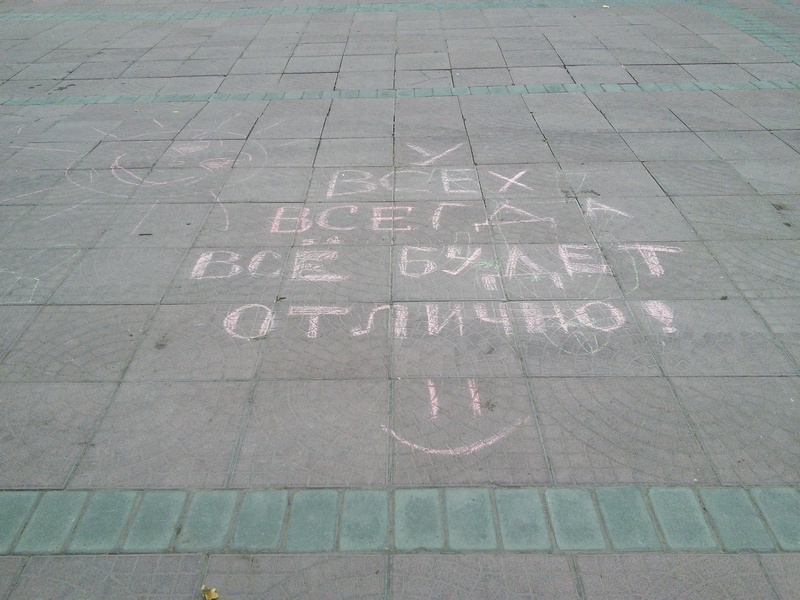 У
ВСЕХ
ВСЕГДА
ВСЁ БУДЕТ
ОТЛИЧНО!